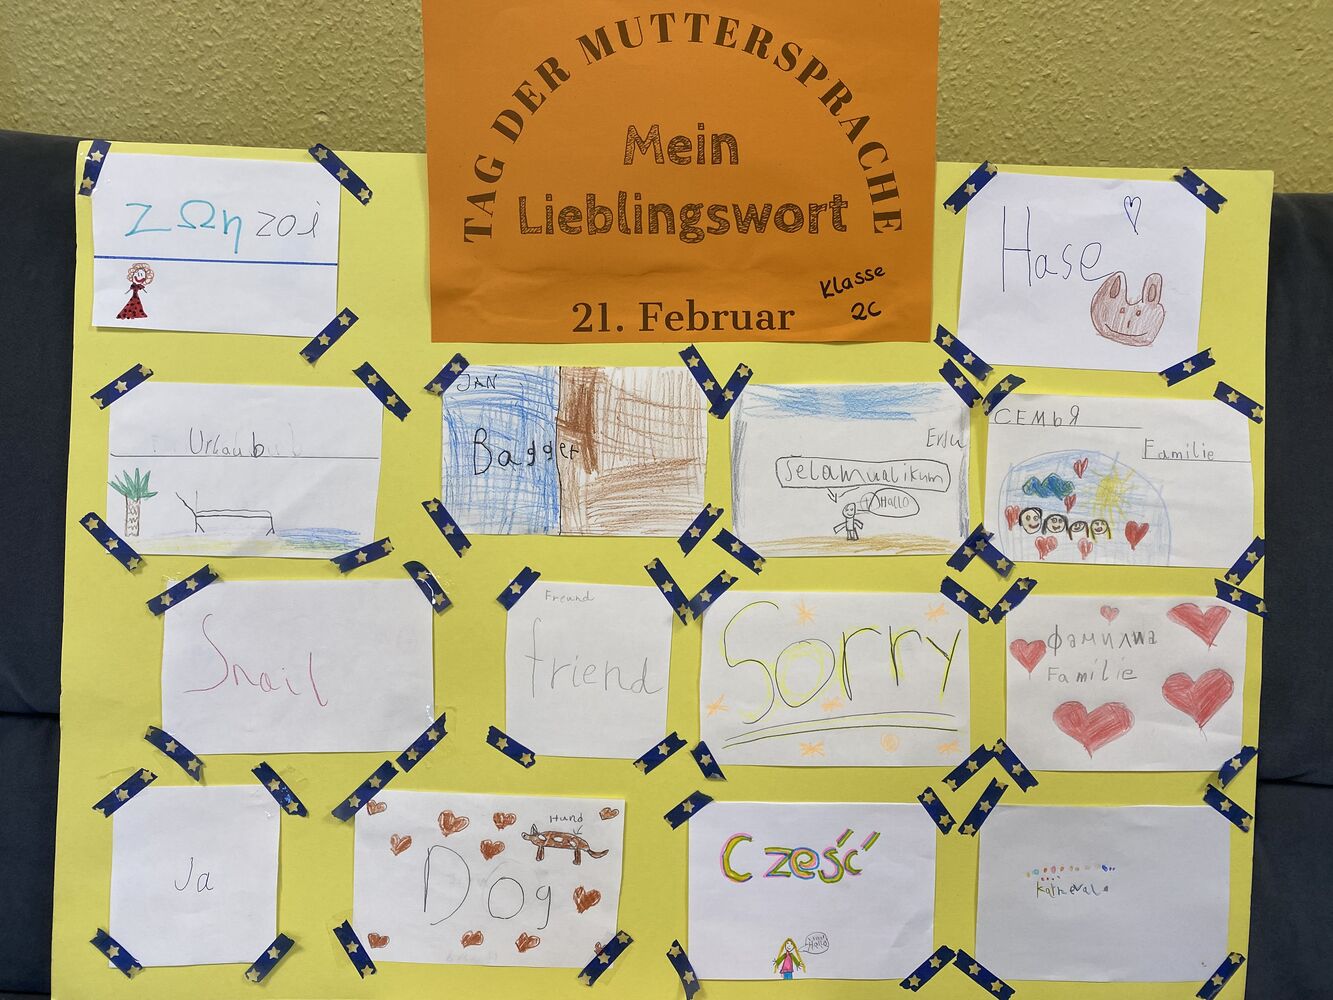 TAG DER MUTTERSPRACHE
Mein
Lieblingswort
21. Februar
Klasse
2C
ZΩη zoi
Hase
Urlaub
JAN
Bagger
Selamualikum
Hallo
СЕМЬЯ
Familie
Snail
Freund
friend
Sorry
фамилиа
Familie
Ja
Hund
Dog
Cześć
Hallo
Karneval